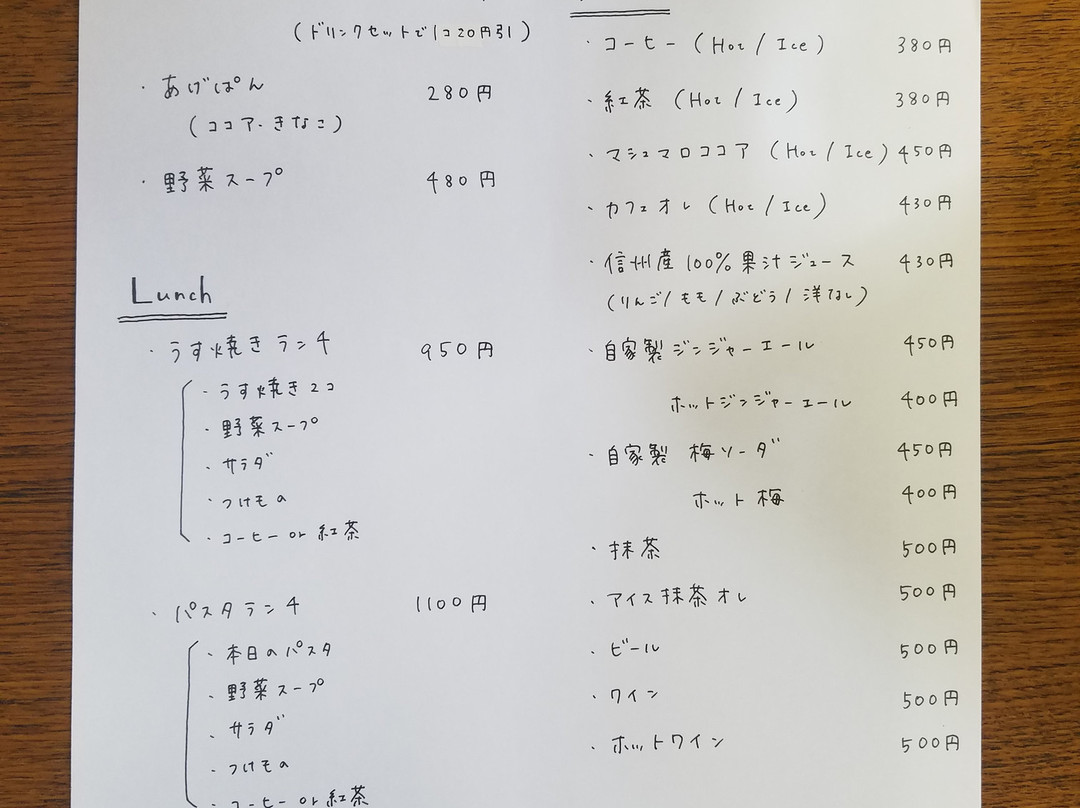 (ドリンクセットで1コ20円引)
・あげぱん 280円
(ココア・きなこ)
・野菜スープ 480円
Lunch
・うす焼きランチ 950円
・うす焼き2コ
・野菜スープ
・サラダ
・つけもの
・コーヒー or 紅茶
・パスタランチ 1100円
・本日のパスタ
・野菜スープ
・サラダ
・つけもの
・コーヒー or 紅茶
・コーヒー (Hot / Ice) 380円
・紅茶 (Hot / Ice) 380円
・マシュマロココア (Hot / Ice) 450円
・カフェオレ (Hot / Ice) 430円
・信州産100%果汁ジュース 430円
(りんご/もも/ぶどう/洋なし)
・自家製ジンジャーエール 450円
ホットジンジャーエール 400円
・自家製 梅ソーダ 450円
ホット梅 400円
・抹茶 500円
・アイス抹茶オレ 500円
・ビール 500円
・ワイン 500円
・ホットワイン 500円